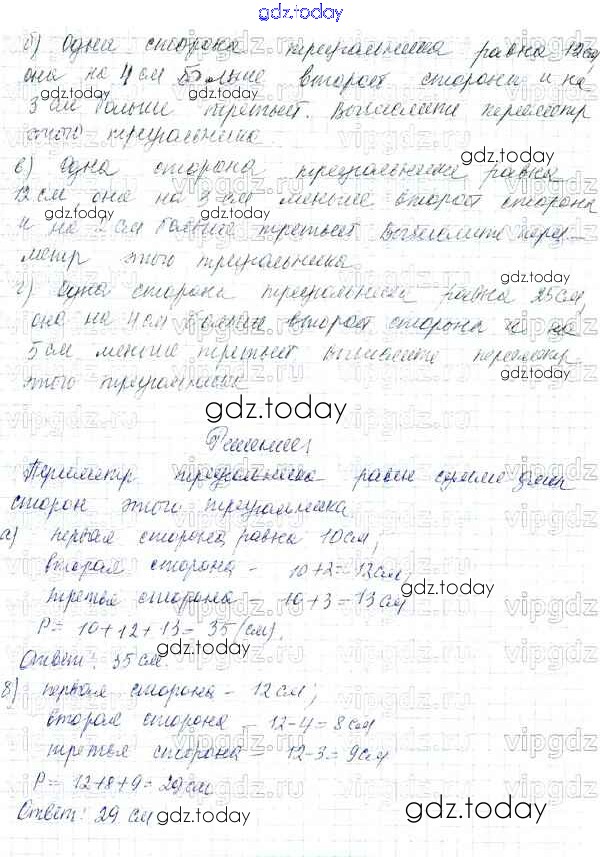 gdz.today
б) Одна сторона треугольника равна 12см,
она на 4 см больше второй стороны и на
3 см больше третьей. Вычислите периметр
этого треугольника.
gdz.today
в) Одна сторона треугольника равна
12 см, она на 3 см меньше второй стороны
и на 2 см больше третьей. Вычислите пери-
метр этого треугольника
gdz.today
г) Одна сторона треугольника равна 25см,
она на 4 см больше второй стороны и на
5 см меньше третьей. Вычислите периметр
этого треугольника
gdz.today
Решение:
Периметр треугольника равен сумме длин
сторон этого треугольника
а) первая сторона равна 10см;
вторая сторона - 10+2=12см,
третья сторона - 10+3=13см
gdz.today
P= 10+12+13= 35(см).
Ответ: 35 см.
gdz.today
б) первая сторона - 12см;
вторая сторона - 12-4=8см
третья сторона - 12-3=9см
P= 12+8+9=29см.
Ответ: 29 см
gdz.today
gdz.today